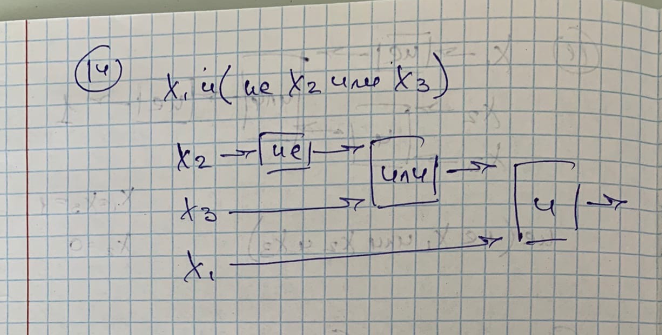 14
X₁ и (не X₂ или X₃)
X₂ → не →
или →
X₃ →
и →
X₁ →